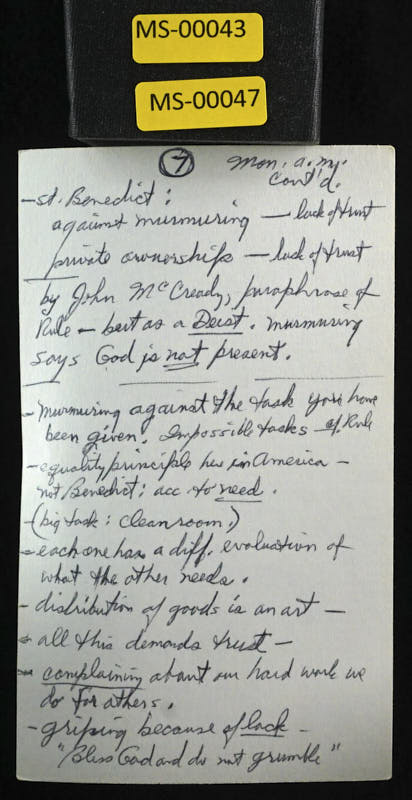 MS-00043
MS-00047
7 Mon. a.m.
Cont'd.
- St. Benedict:
against murmuring — lack of trust
private ownership — lack of trust
by John McCready, paraphrase of
Rule — but as a Deist. Murmuring
says God is not present.
- Murmuring against the task you have
been given. Impossible tasks of Rule
- equality principle here in America —
not Benedict: acc. to need.
- (big task: clean room.)
- each one has a diff. evaluation of
what the other needs.
- distribution of goods is an art —
- all this demands trust —
- complaining about our hard work we
do for others.
- griping because of lack —
"Bless God and do not grumble"